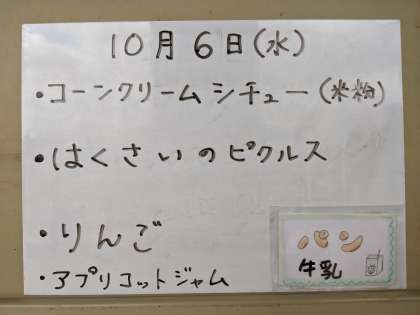 10月6日(水)
・コーンクリームシチュー(米粉)
・はくさいのピクルス
・りんご
・アプリコットジャム
パン
牛乳